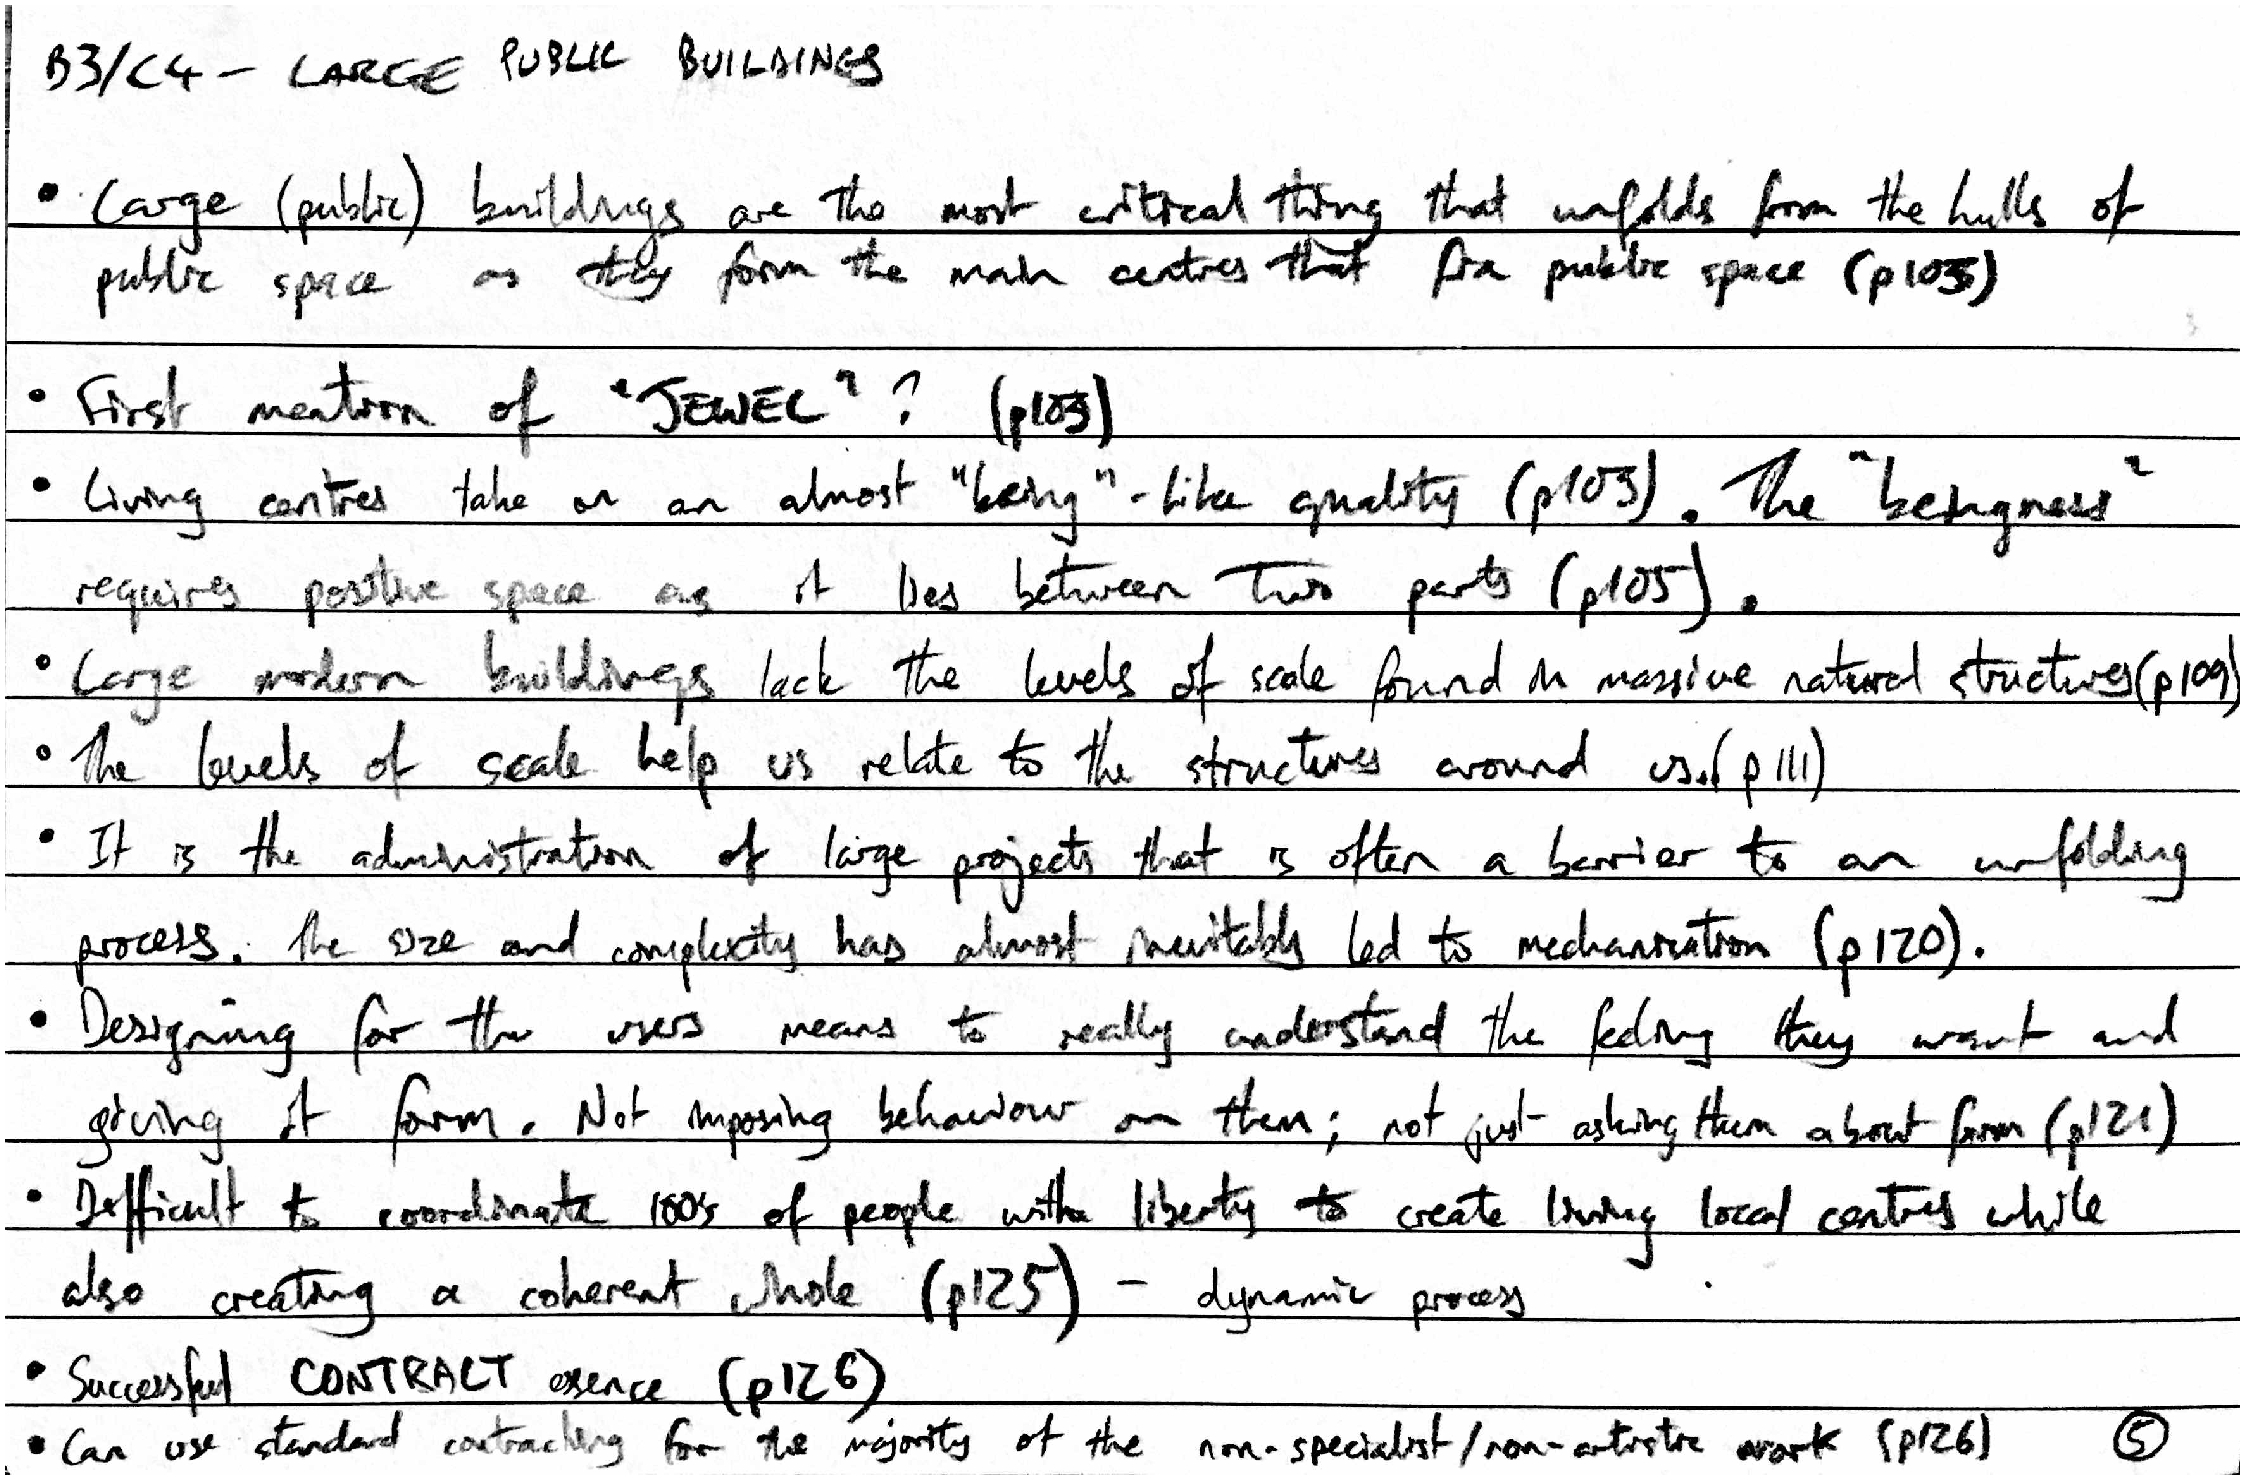 B3/C4 - LARGE PUBLIC BUILDINGS
• Large (public) buildings are the most critical thing that unfolds from the hulls of
public space as they form the main centres that fix public space (p103)
• First mention of "JEWEL"? (p103)
• Living centres take on an almost "being"-like quality (p103). The "beingness"
requires positive space as it lies between two parts (p105).
• Large modern buildings lack the levels of scale found in massive natural structures (p109)
• The levels of scale help us relate to the structures around us. (p111)
• It is the administration of large projects that is often a barrier to an unfolding
process. The size and complexity has almost inevitably led to mechanisation (p120).
• Designing for the users means to really understand the feeling they want and
giving it form. Not imposing behaviour on them; not just asking them about form (p121)
• Difficult to coordinate 100's of people with liberty to create living local centres while
also creating a coherent whole (p125) - dynamic process
• Successful CONTRACT esence (p126)
• Can use standard contracting for the majority of the non-specialist/non-artistic work (p126) ⑤